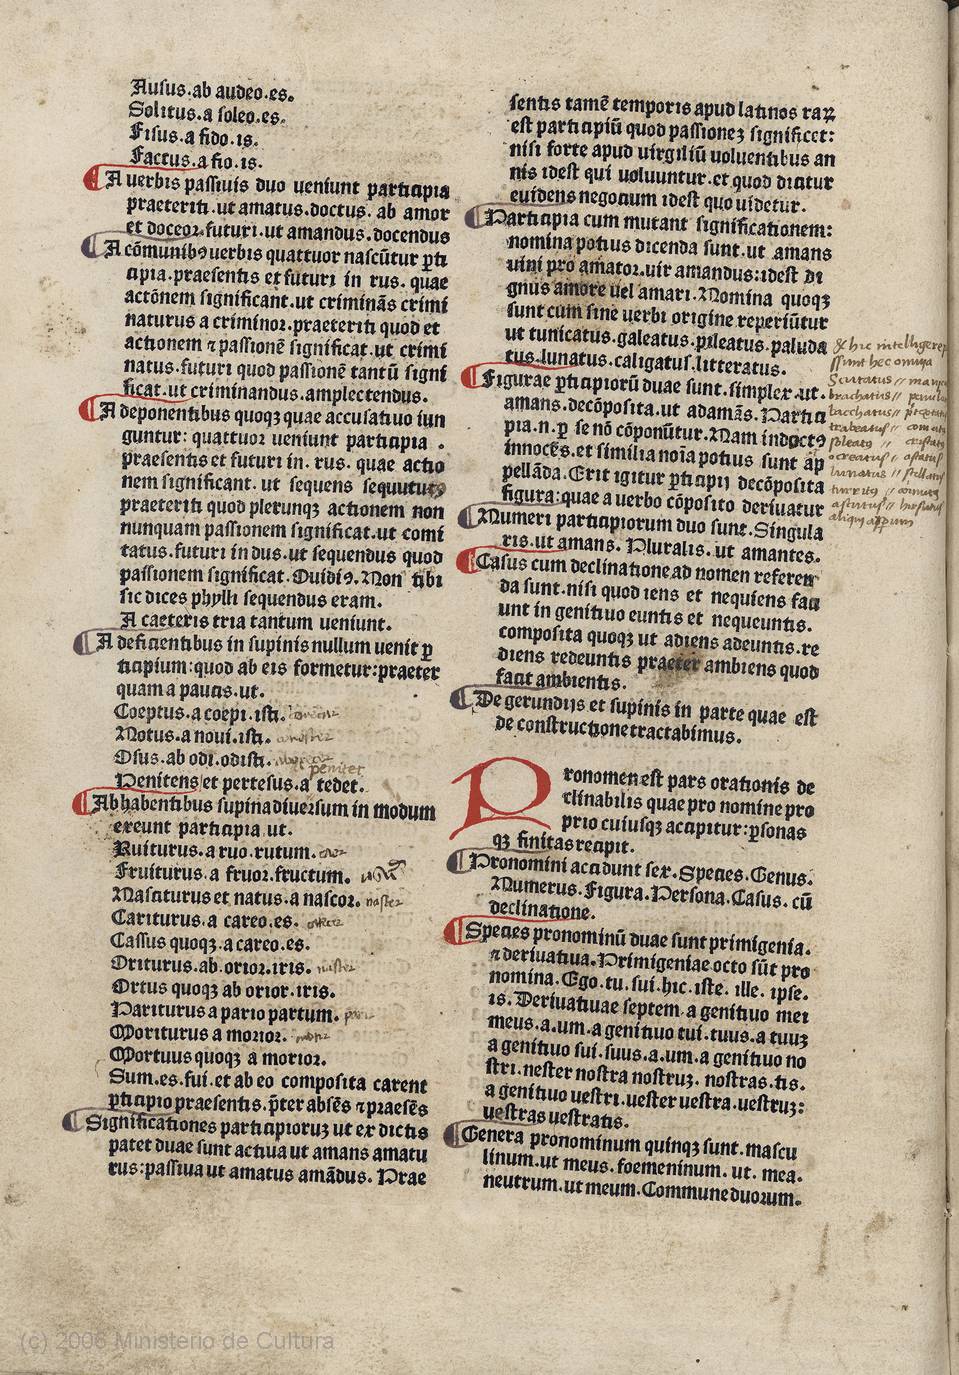 Ausus.ab audeo.es.
Solitus.a soleo.es.
Fisus.a fido.is.
Factus.a fio.is.
A uerbis passiuis duo ueniunt participia
praeteriti.ut amatus.doctus. ab amor
et doceor.futuri.ut amandus.docendus
A cōmunibꝰ uerbis quattuor nascūtur ꝑti
cipia.praesentis et futuri in rus. quae
actōnem significant.ut crimināns crimi
naturus a criminor.praeteriti quod et
actionem ⁊ passionē significat.ut crimi
natus.futuri quod passionē tantū signi
ficat.ut criminandus.amplectendus.
A deponentibus quoqꝫ quae accusatiuo iun
guntur: quattuor ueniunt participia .
praesentis et futuri in. rus. quae actio
nem significant. ut sequens sequuturꝰ
praeteriti quod plerunqꝫ actionem non
nunquam passionem significat.ut comi
tatus.futuri in dus.ut sequendus quod
passionem significat.Ouidiꝰ.Non tibi
sic dices phylli sequendus eram.
A caeteris tria tantum ueniunt.
A deficientibus in supinis nullum uenit ꝑ
ticipium:quod ab eis formetur:praeter
quam a paucis.ut.
Coeptus.a coepi.isti.
Notus.a noui.isti.
Osus.ab odi.odisti.
penitet
Penitens et pertesus.a tedet.
Ab habentibus supina diuersum in modum
exeunt participia ut.
Ruiturus.a ruo.rutum.
Fruiturus.a fruor.fructum.
Nasciturus et natus.a nascor.
Cariturus.a careo.es.
Cassus quoqꝫ.a careo.es.
Oriturus.ab.orior.iris.
Ortus quoqꝫ ab orior.iris.
Pariturus a pario partum.
Moriturus a morior.
Mortuus quoqꝫ a morior.
Sum.es.fui.et ab eo composita carent
ꝑticipio praesentis.p̄ter absēs ⁊ praesēs
Significationes participioruꝫ ut ex dictis
patet duae sunt actiua ut amans amatu
rus:passiua ut amatus amādus. Prae
sentis tamē temporis apud latinos raꝝ
est participiū quod passioneꝫ significet:
nisi forte apud uirgiliū uoluentibus an
nis idest qui uoluuntur.et quod dicitur
euidens negocium idest quo uidetur.
Participia cum mutant significationem:
nomina potius dicenda sunt.ut amans
uini pro amator.uir amandus:idest di
gnus amore uel amari.Nomina quoqꝫ
sunt cum sine uerbi origine reperiūtur
ut tunicatus.galeatus.pileatus.paluda
tus.lunatus.caligatus.litteratus.
Figurae ꝑticipiorū duae sunt.simplex.ut.
amans.decōposita.ut adamās.Partici
pia.n.ꝑ se nō cōponūtur.Nam indoctꝰ
innocēs.et similia noīa potius sunt ap
pellāda.Erit igitur ꝑticipij decōposita
figura:quae a uerbo cōposito deriuatur
Numeri participiorum duo sunt.Singula
ris.ut amans. Pluralis. ut amantes.
Casus cum declinatione ad nomen referen
da sunt.nisi quod iens et nequiens faci
unt in genitiuo euntis et nequeuntis.
composita quoqꝫ ut adiens adeuntis.re
diens redeuntis praeter ambiens quod
facit ambientis.
De gerundijs et supinis in parte quae est
de constructione tractabimus.
Pronomen est pars orationis de
clinabilis quae pro nomine pro
prio cuiusqꝫ accipitur:ꝑsonas
qꝫ finitas recipit.
Pronomini accidunt sex.Species.Genus.
Numerus.Figura.Persona.Casus. cū
declinatione.
Species pronominū duae sunt primigenia.
⁊ deriuatiua.Primigeniae octo sūt pro
nomina.Ego.tu.sui.hic.iste. ille. ipse.
is.Deriuatiuae septem.a genitiuo mei
meus.a.um.a genitiuo tui.tuus.a tuuꝫ
a genitiuo sui.suus.a.um.a genitiuo no
stri.noster nostra nostruꝫ. nostras.tis.
a genitiuo uestri.uester uestra.uestruꝫ:
uestras uestratis.
Genera pronominum quinqꝫ sunt.mascu
linum.ut meus.foemeninum. ut. mea.
neutrum.ut meum.Commune duorum.
& hic intelligere
ssunt hec omnia
Scutatus
brachatus
bacchatus
trabeatus
soleatꝰ
ocreatus
lunatus
turritꝰ
(c) 2006 Ministerio de Cultura